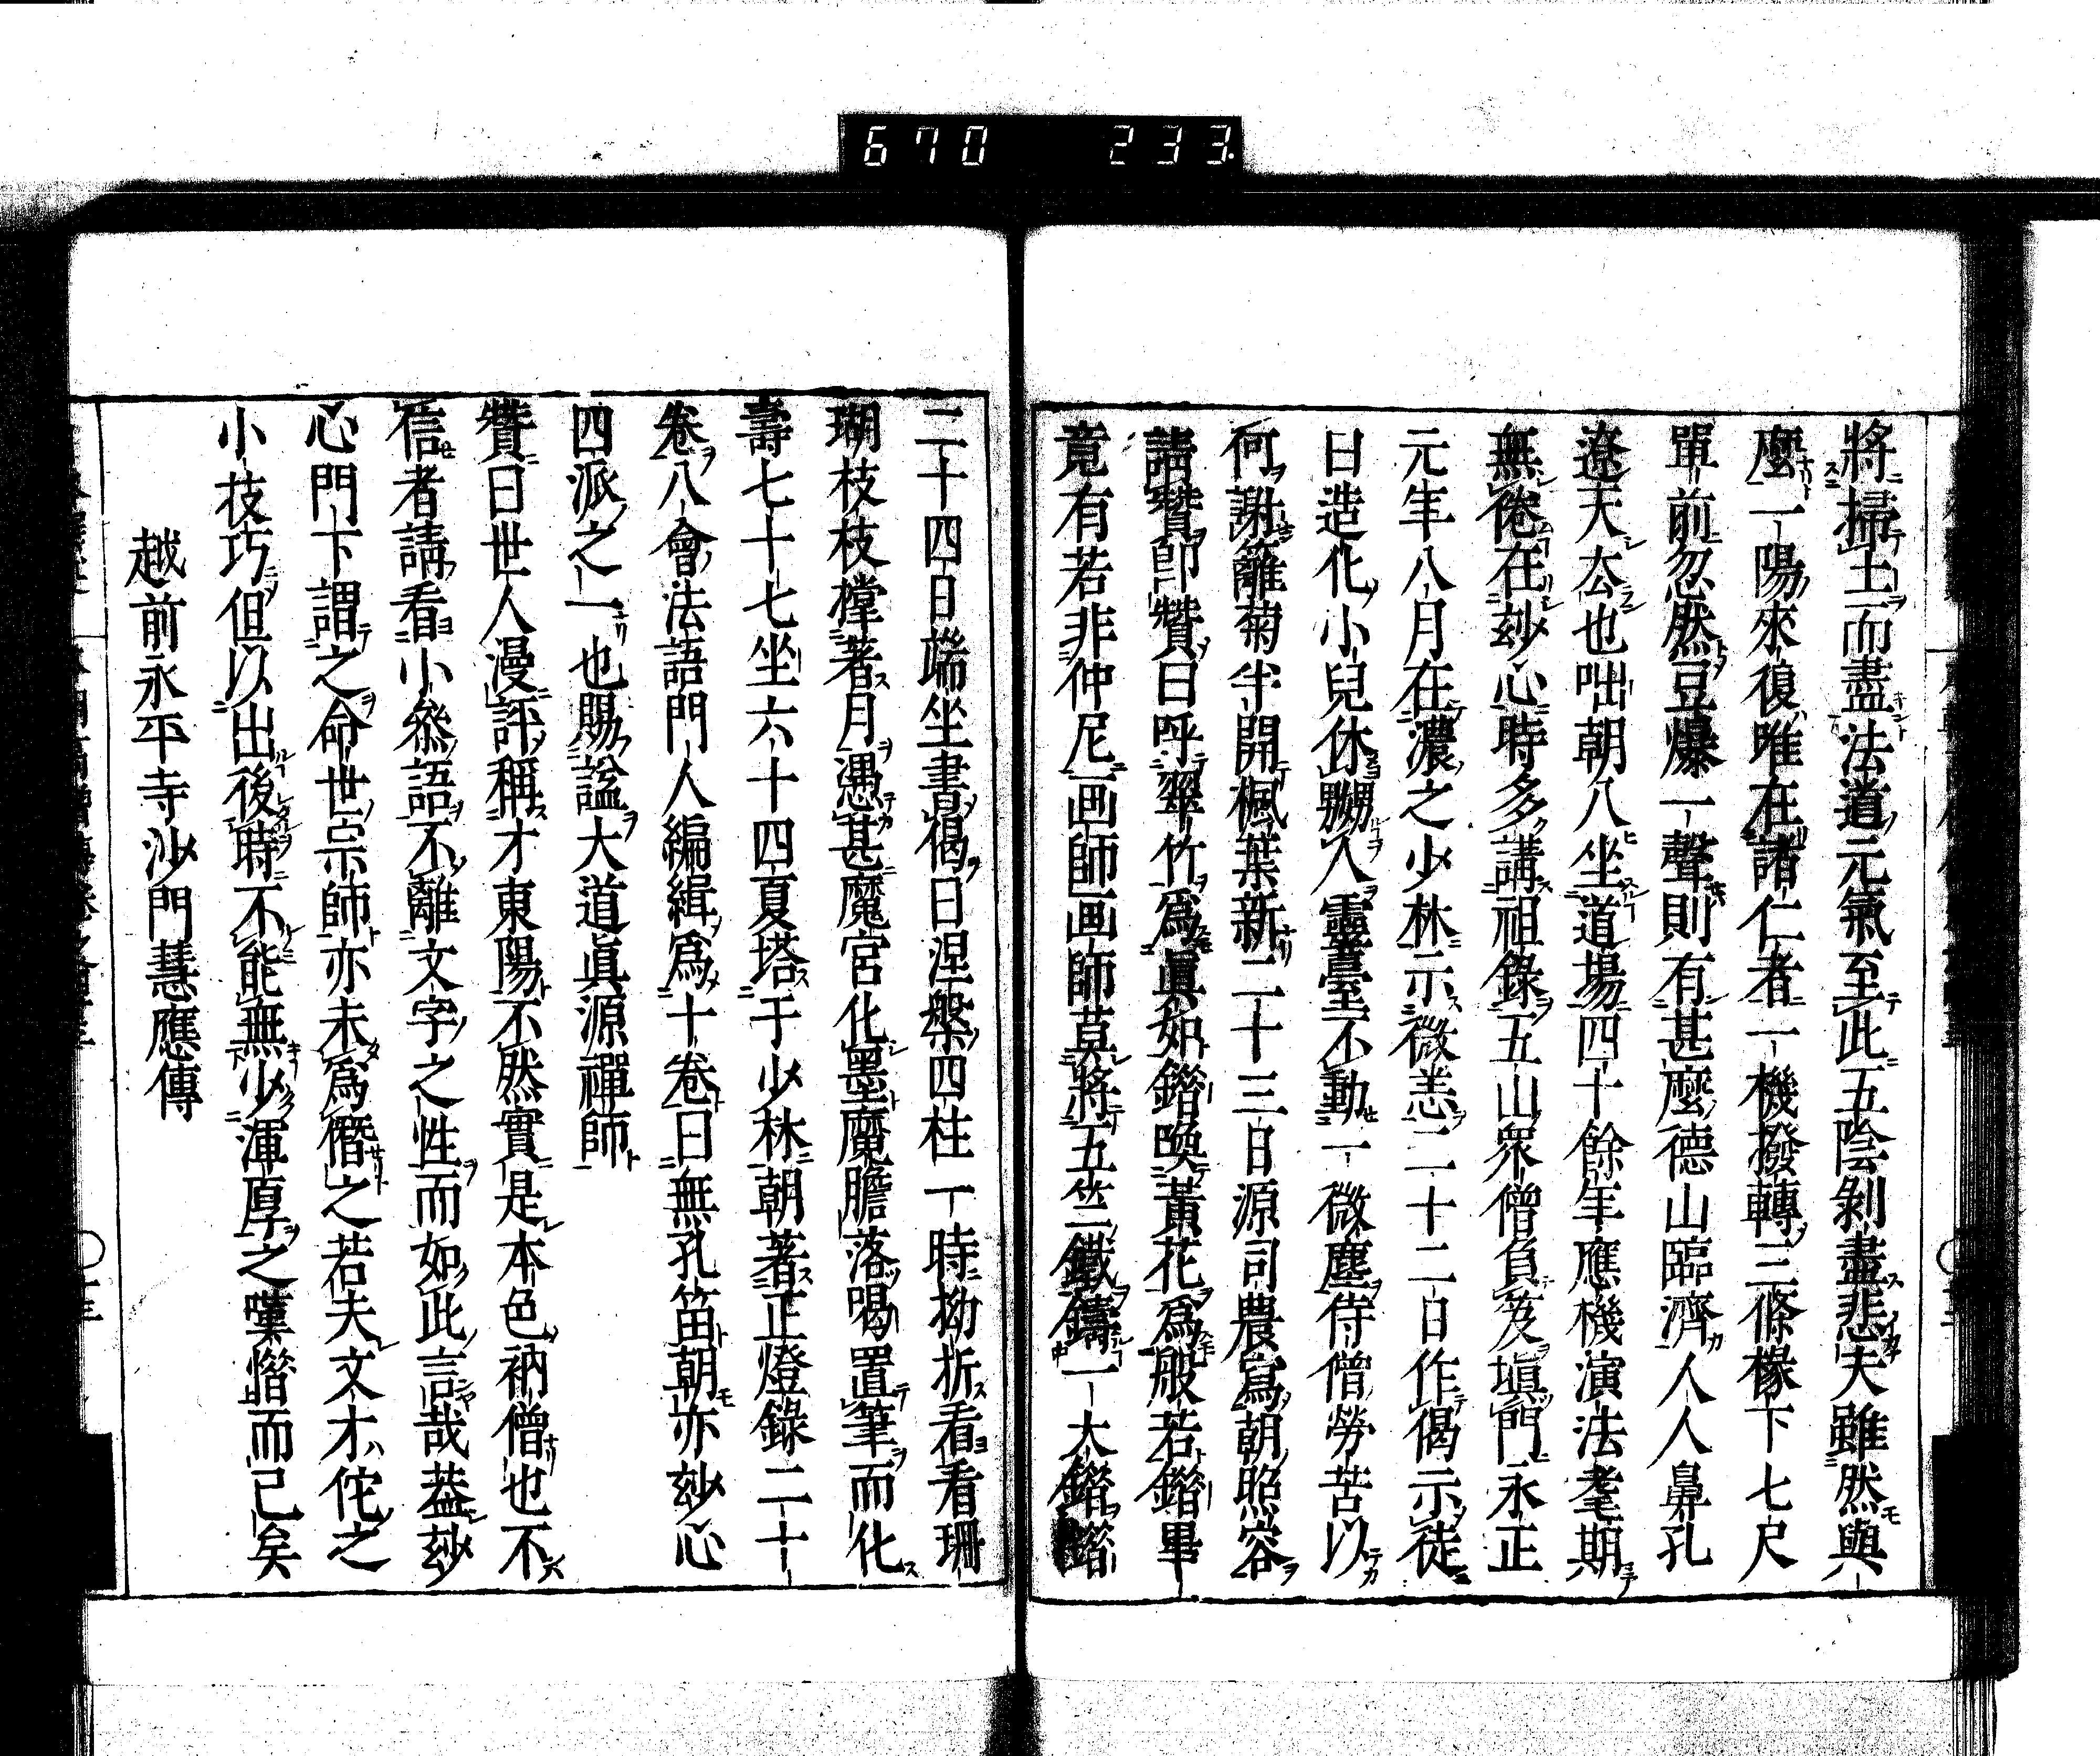 670 233
將掃土而盡法道元氣至此五陰剝盡悲夫雖然與
麼一陽來復唯在諸仁者一機撥轉三條椽下七尺
單前忽然豆爆一聲則有甚麼德山臨濟人人鼻孔
遼天去也咄朝八坐道場四十餘年應機演法耄期
無倦在玅心時多講祖錄五山衆僧負笈塡門永正
元年八月在濃之少林示微恙二十二日作偈示徒
曰造化小兒休嬲人靈臺不動一微塵侍僧勞苦以
何謝籬菊半開楓葉新二十三日源司農寫朝照容
請贊卽贊曰呼翠竹爲眞如錯喚黃花爲般若錯畢
竟有若非仲尼画師画師莫將五竺鐵鑄一大錯錯
二十四日端坐書偈曰涅槃四柱一時拗折看看珊
瑚枝枝撑著月憑甚魔宮化墨魔膽落喝置筆而化
壽七十七坐六十四夏塔于少林朝著正燈錄二十
卷八會法語門人編緝爲十卷曰無孔笛朝亦玅心
四派之一也賜謚大道眞源禪師
贊曰世人漫評稱才東陽不然實是本色衲僧也不
信者請看小叅語不離文字之性而如此言哉葢玅
心門下謂之命世宗師亦未爲僭之若夫文才佗之
小技巧但以出後時不能無少渾厚之嘆㬱而已矣
越前永平寺沙門慧應傳